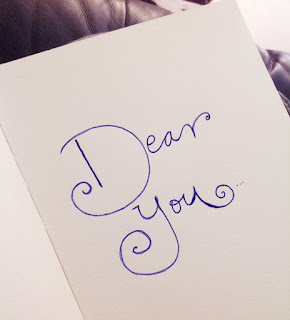 Dear
You...